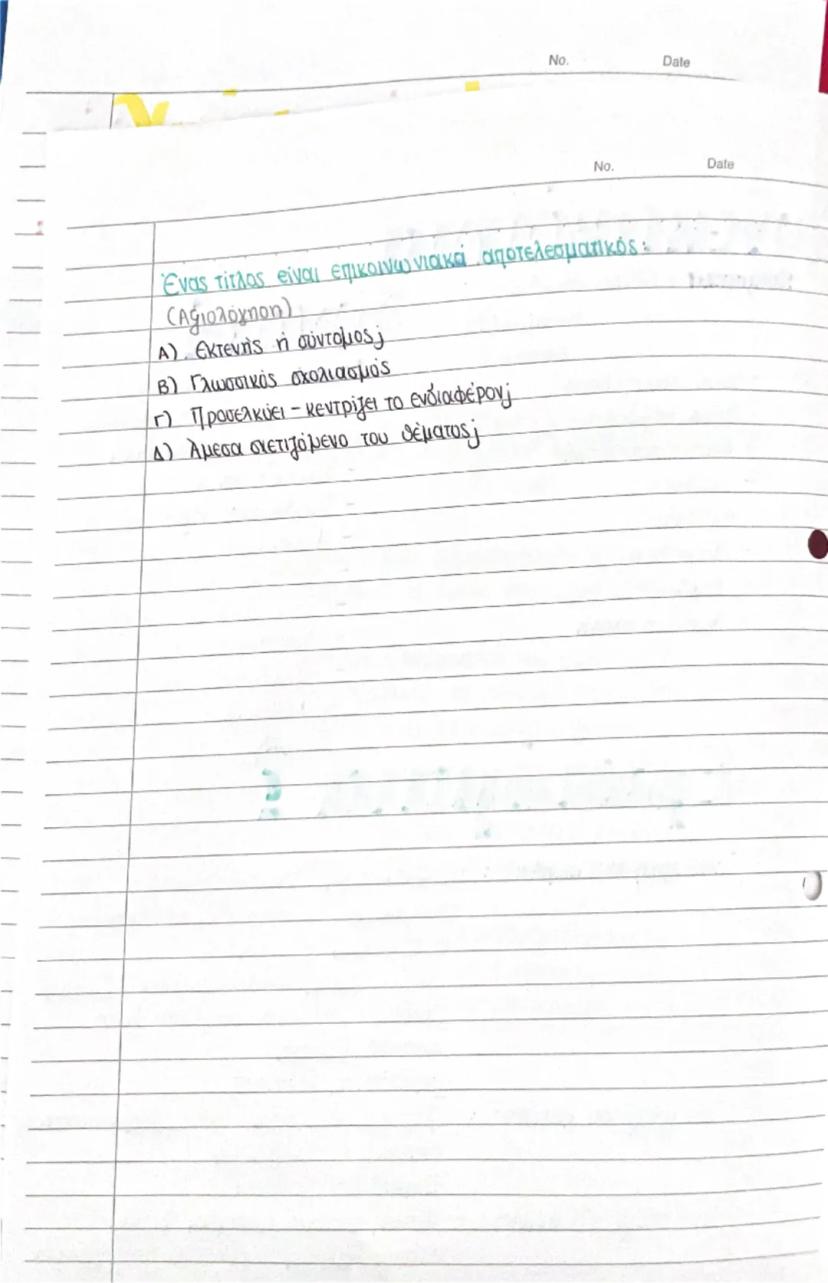 No. Date
No. Date
Ένας τίτλος είναι επικοινωνιακά αποτελεσματικός:
(Αξιολόγηση)
Α) Εκτενής ή σύντομος;
Β) Γλωσσικός σχολιασμός
Γ) Προσελκύει - κεντρίζει το ενδιαφέρον;
Δ) Άμεσα σχετιζόμενο του θέματος;